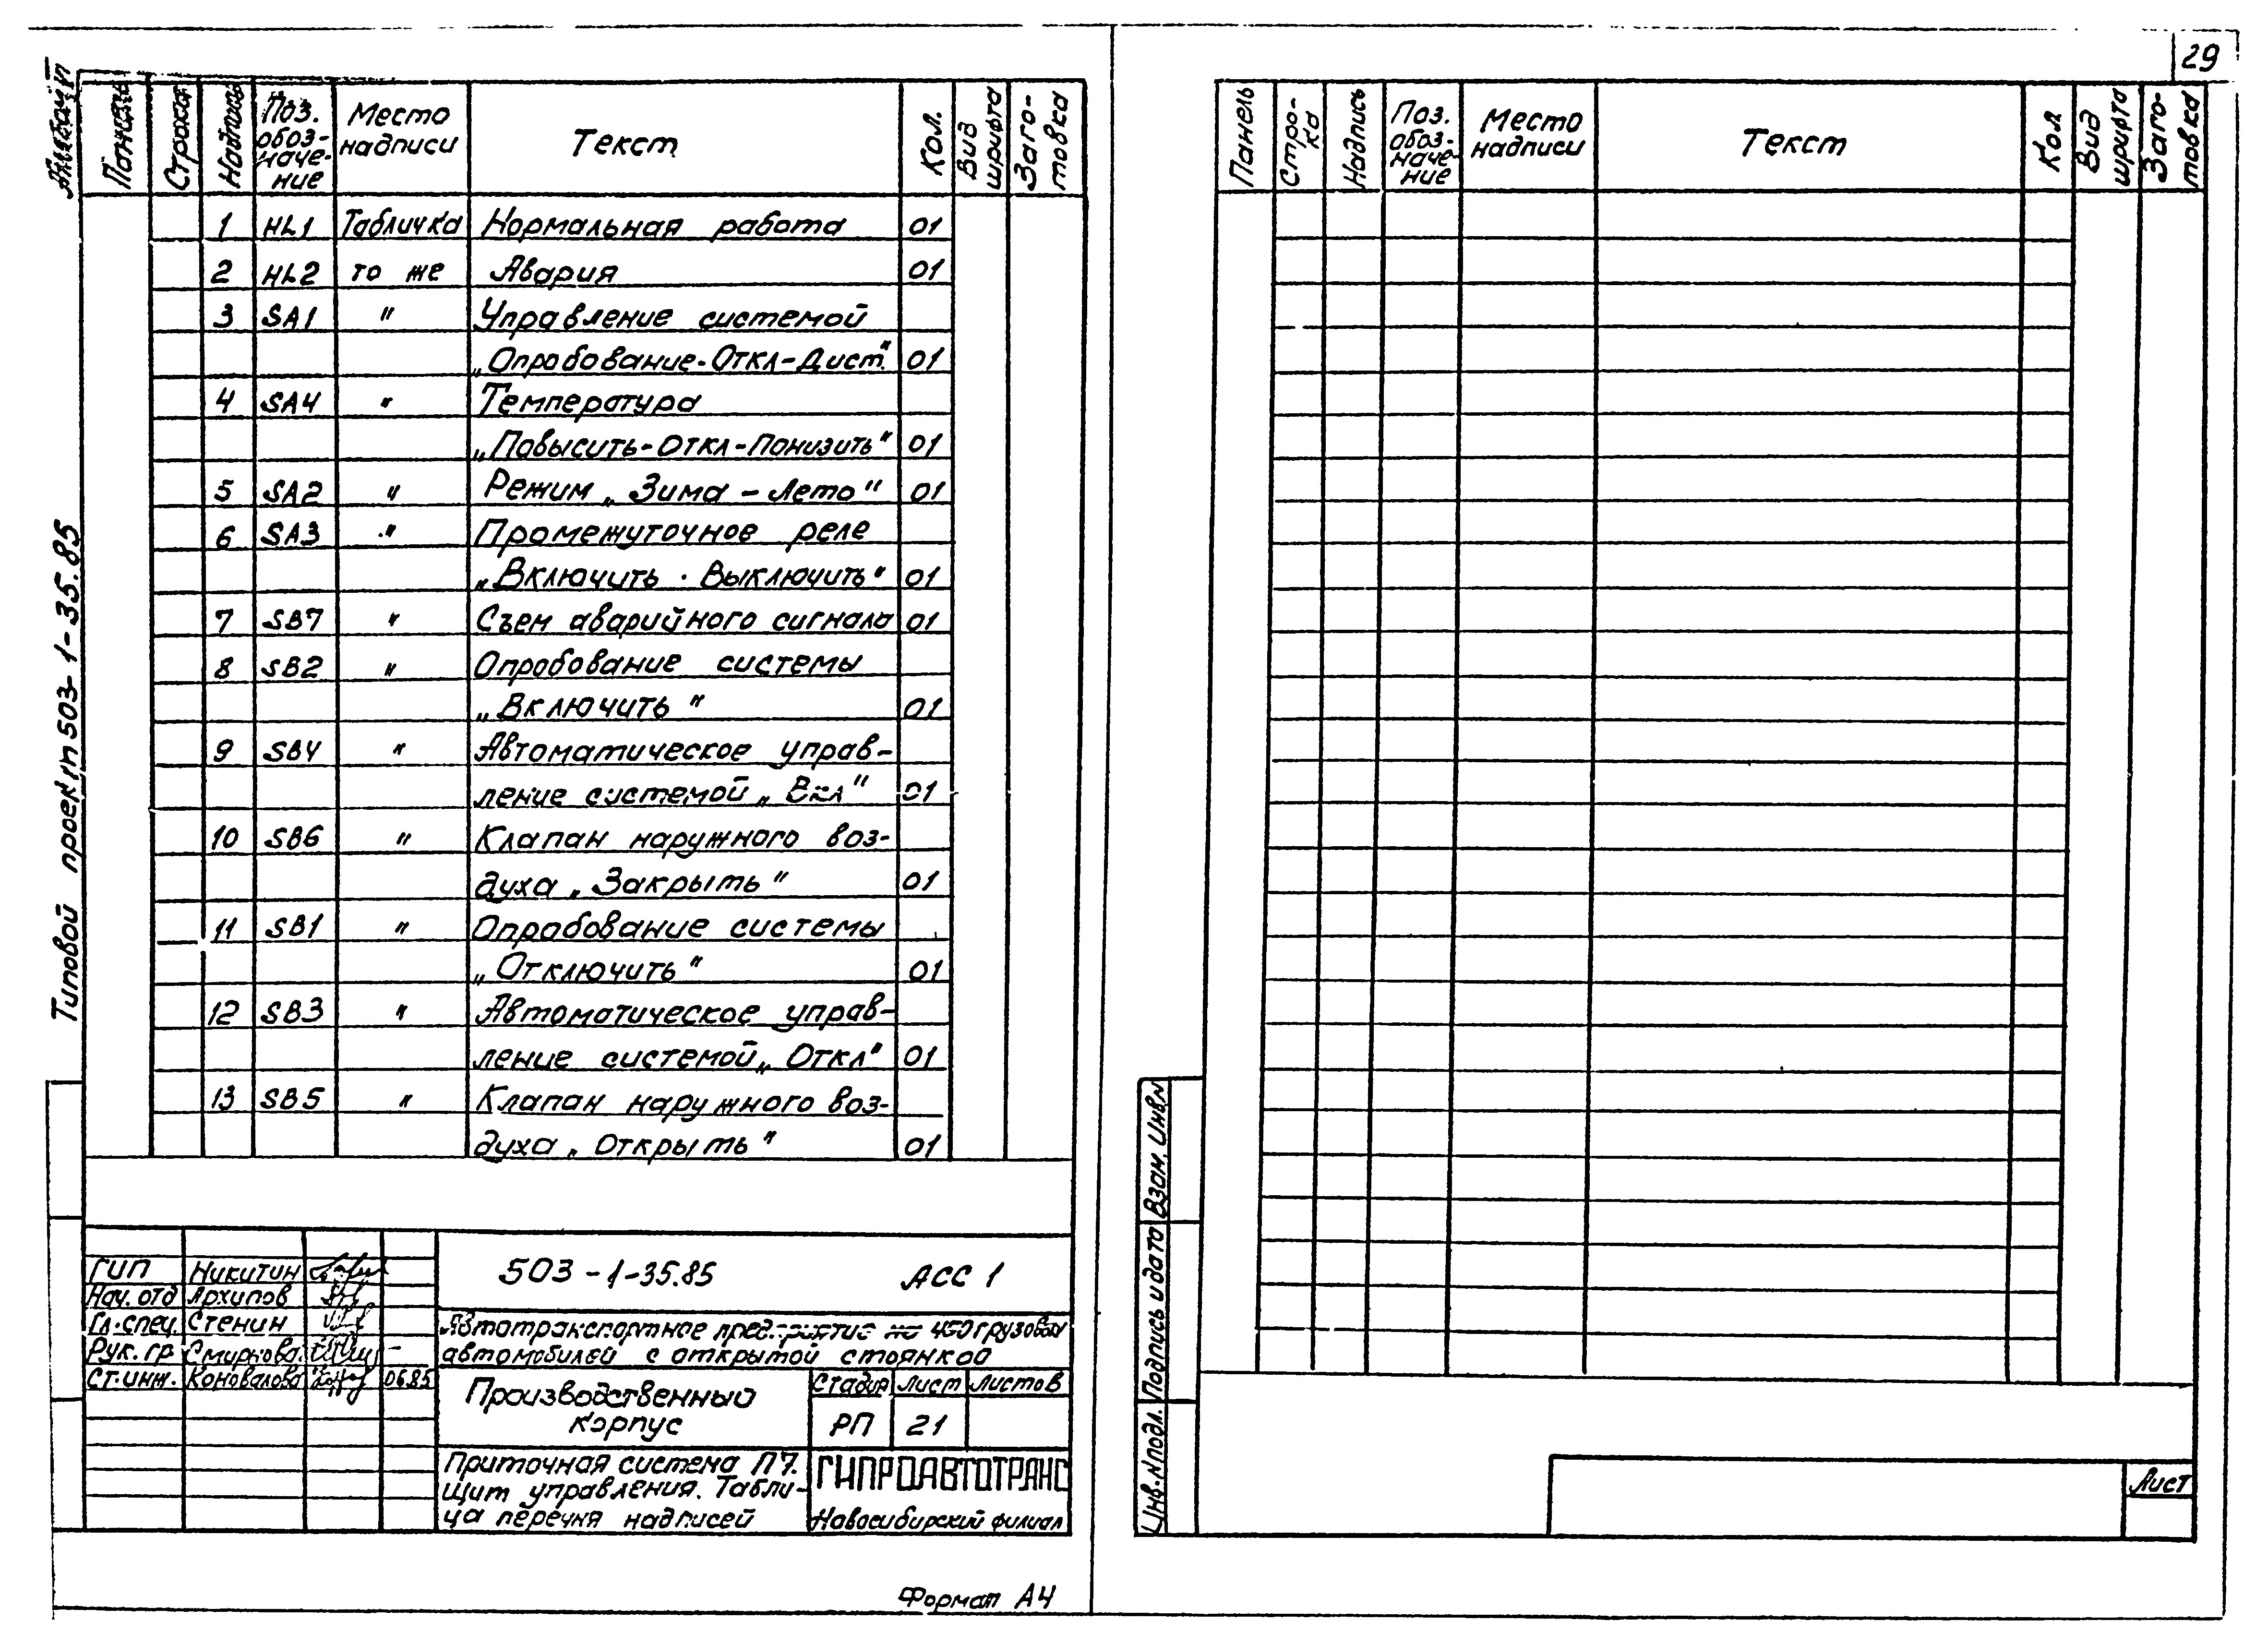 29
Типовой проект 503-1-35.85
Панель Строка Надпись Поз. обозначение Место надписи Текст Кол. Вид шрифта Заготовка
1 HL1 Табличка Нормальная работа 01
2 HL2 то же Авария 01
3 SA1 " Управление системой
„Опробование-Откл-Дист." 01
4 SA4 " Температура
„Повысить-Откл-Понизить" 01
5 SA2 " Режим „Зима - Лето" 01
6 SA3 " Промежуточное реле
„Включить · Выключить" 01
7 SB7 " Съем аварийного сигнала 01
8 SB2 " Опробование системы
„Включить" 01
9 SB4 " Автоматическое управ-
ление системой „Вкл" 01
10 SB6 " Клапан наружного воз-
духа „Закрыть" 01
11 SB1 " Опробование системы
„Отключить" 01
12 SB3 " Автоматическое управ-
ление системой „Откл" 01
13 SB5 " Клапан наружного воз-
духа „Открыть" 01
503-1-35.85 АСС 1
ГИП Никитин
Нач. отд Архипов
Гл. спец. Стенин
Рук. гр Смирнова
Ст. инж. Коновалова 06.85
Автотранспортное предприятие на 450 грузовых
автомобилей с открытой стоянкой
Производственный
корпус
Стадия Лист Листов
РП 21
Приточная система П7.
Щит управления. Табли-
ца перечня надписей
ГИПРОАВТОТРАНС
Новосибирский филиал
Формат А4
Панель Стро-ка Надпись Поз. обоз-наче-ние Место надписи Текст Кол Вид шрифта Заго-товка
Взам. Инв.N
Подпись и дата
Инв.N подл.
Лист